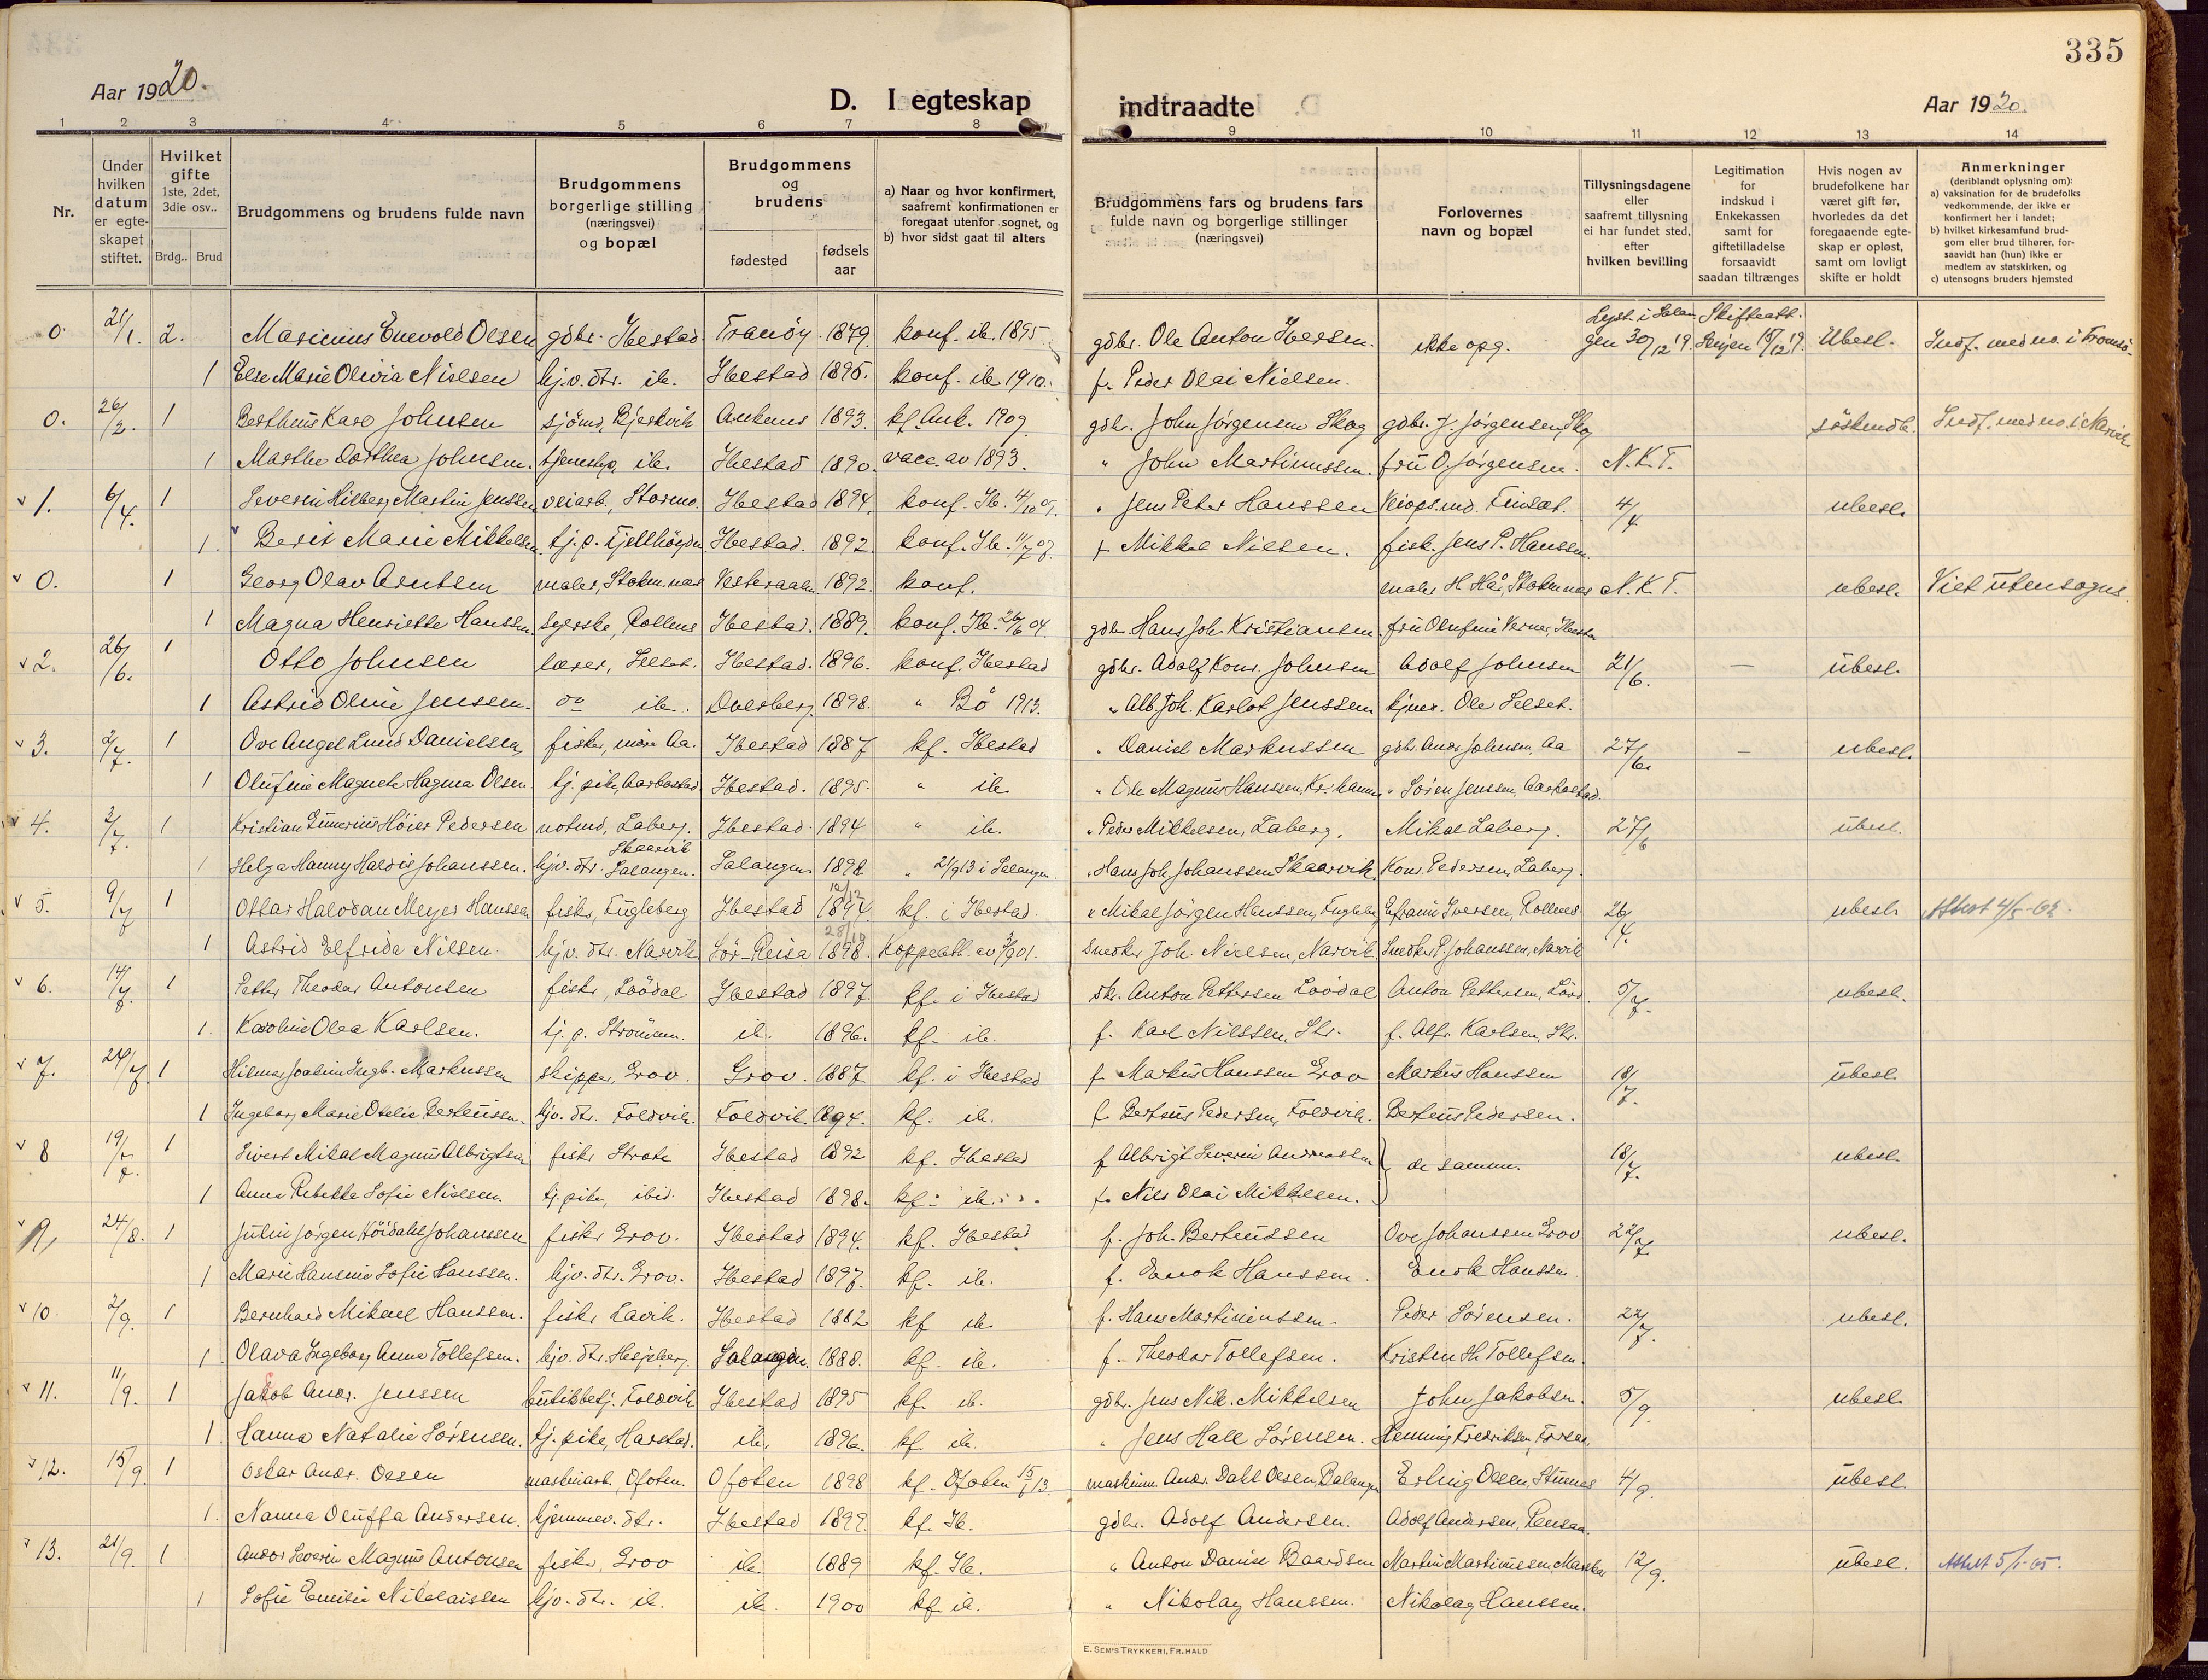 335
Aar 1920.
D. I egteskap
indtraadte
Aar 1920.
1 2 3 4 5 6 7 8 9 10 11 12 13 14
Nr.
Under hvilken datum er egteskapet stiftet.
Hvilket gifte 1ste, 2det, 3die osv..
Brdg.. Brud
Brudgommens og brudens fulde navn
Brudgommens borgerlige stilling (næringsvei) og bopæl
Brudgommens og brudens
fødested
fødsels aar
a) Naar og hvor konfirmert, saafremt konfirmationen er foregaat utenfor sognet, og
b) hvor sidst gaat til alters
Brudgommens fars og brudens fars fulde navn og borgerlige stillinger (næringsvei)
Forlovernes navn og bopæl
Tillysningsdagene eller saafremt tillysning ei har fundet sted, efter hvilken bevilling
Legitimation for indskud i Enkekassen samt for giftetilladelse forsaavidt saadan tiltrænges
Hvis nogen av brudefolkene har været gift før, hvorledes da det foregaaende egteskap er opløst, samt om lovligt skifte er holdt
Anmerkninger (deriblandt oplysning om):
a) vaksination for de brudefolks vedkommende, der ikke er konfirmert her i landet;
b) hvilket kirkesamfund brudgom eller brud tilhører, forsaavidt han (hun) ikke er medlem av statskirken, og
c) utensogns bruders hjemsted
0. 21/1. 2. Marinius Enevold Olsen gdbr. Ibestad Tranöy 1879. konf. ib. 1895 gdbr. Ole Anton Iversen. ikke opg. Lyst. i Salangen 30/12 19. Skifteatt. Senjen 18/12 19. Ubesl. Indf. med no. i Tromsö.
1 Else Marie Olivia Nielsen hj.v. dtr. ib. Ibestad 1895. konf. ib. 1910. f. Peder Olai Nielsen.
0. 26/2. 1 Bertheus Karo Johnsen sjömd, Bjerkvik Ankenes 1893. kf. Ank. 1909 gdbr. John Jörgensen Skog gdbr. J. Jörgensen, Skog söskendb. Indf. med no. i Narvik
1 Marthe Dorthea Johnsen. tjenestp. ib. Ibestad 1890. vacc. av 1893. " John Martinussen. fru O. Jörgensen. N.K.T.
v 1. 6/4. 1 Severin Hilberg Martin Jenssen veiarb., Stormo. Ibestad 1894. konf. Ib. 4/10 09. " Jens Peter Hanssen Veiops.md. Finsæt. 4/4 ubesl.
1. Berit Marie Mikkelsen. tj.p. Fjellhöyden Ibestad. 1892. konf. Ib. 11/7 07. f Mikkel Nilsen. fisk. Jens P. Hanssen.
v 0. 1 Georg Olav Arntsen maler, Stokm.næs Vesteraalen 1892. konf. maler H. Hås, Stokmnæs N.K.T. ubesl. Viet utensogns
1 Magna Henriette Hanssen. syerske, Rollnes Ibestad. 1889. konf. Ib. 26/6 04. gdbr. Hans Joh. Kristiansen. fru Olufine Verner, Ibestad
v 2. 26/6. 1 Otto Johnsen lærer, Selset. Ibestad. 1896. konf. Ibestad gdbr. Adolf Konr. Johnsen Adolf Johnsen 21/6. — ubesl.
1 Astrid Oline Jenssen. do ib. Dverberg 1898. " Bö 1913. " Alb. Joh. Karlot Jenssen kjmr. Ole Selset.
v 3. 2/7. 1 Ove Angel Lund Danielsen, fisker, indre Aa. Ibestad 1887 kf. Ibestad " Daniel Markussen gdbr. Andr. Johnsen, Aa 27/6. — ubesl.
1 Olufine Magnete Hagma Olsen. tj. pike, Aarbostad. Ibestad. 1895. " ib. " Ole Magnus Hanssen, Kr.hamn " Sören Jenssen, Aarbostad.
v 4. 2/7. 1 Kristian Gunerius Höier Pedersen notmd, Laberg. Ibestad. 1894 " ib. " Peder Mikkelsen, Laberg. Mikal Laberg. 27/6 ubesl.
1 Helga Hanny Haldis Johanssen. hjv. dtr. Skaarvik Salangen. Salangen 1898. " 21/9 13 i Salangen. " Hans Joh. Johanssen Skaarvik. Konr. Pedersen, Laberg.
v 5. 9/7 1 Ottar Halvdan Meyer Hanssen fisker, Fugleberg Ibestad 12/12 1894. kf. i Ibestad. " Mikal Jörgen Hanssen, Fugleberg Efraim Iversen, Rollnes 26/4. ubesl. Attest 4/5-62.
1 Astrid Elfrida Nilsen. hjv. dtr. Narvik Sör-Reisa 28/10 1898. Koppeatt. av 3/9 01. snedker Joh. Nielsen, Narvik Snedker P. Johanssen, Narvik
v 6. 14/7. 1 Petter Theodor Antonsen fisker, Löödal. Ibestad 1897. kf. i Ibestad skr. Anton Pettersen Löödal Anton Pettersen, Lööd. 5/7. ubesl.
1. Karoline Olea Karlsen. tj. p. Strömm. ib. 1896. kf. ib. f. Karl Nilssen, Str. f. Alfr. Karlsen, Str.
v 7. 24/7. 1 Hilmar Joakim Ingb. Markussen skipper, Grov. Grov. 1887 kf. i Ibestad f. Markus Hanssen Grov Markus Hanssen 18/7. ubesl.
1 Ingeborg Marie Otelie Berteusen. hjv. dtr. Foldvik. Foldvik. 1894. kf. ib. f Berteus Pedersen, Foldvik. Berteus Pedersen.
v 8 19/7. 1 Sivert Mikal Magnus Albrigtsen fisker Strate Ibestad 1892 kf. Ibestad f Albrigt Severin Andreassen } de samme. 18/7. ubesl.
1 Anna Rebekka Sofie Nielsen. tj. pike, ibid. Ibestad 1898. kf. ib. f. Nils Olai Mikkelsen.
v 9, 24/8. 1 Julin Jörgen Höidahl Johanssen fisker Grov. Ibestad 1894. kf. Ibestad f. Joh. Berteussen Ove Johanssen Grov 22/7. ubesl.
1 Marie Hansine Sofie Hanssen. hjv. dtr. Grov. Ibestad 1897. kf. ib. f. Enok Hanssen. Enok Hanssen
v 10. 2/9. 1 Bernhard Mikael Hanssen. fisker Lavik. Ibestad 1882 kf ib. f. Hans Martiniussen. Peder Sörensen. 22/7. ubesl.
1. Olava Ingeborg Anna Tollefsen. hjv. dtr. Hesjeberg. Salangen. 1888. kf. ib. f. Theodor Tollefsen. Kristen H. Tollefsen.
v 11. 11/9. 1 Jakob Andr. Jenssen butikbetj. Foldvik Ibestad 1895 kf. ib. gdbr. Jens Nik. Mikkelsen John Jakobsen. 5/9. ubesl.
1. Hanna Natalie Sörensen. tj. pike, Harstad. ib. 1896. kf ib. " Jens Hall Sörensen. Henning Fredriksen,
v 12. 15/9. 1 Oskar Andr. Olsen maskinarb., Ofoten. Ofoten 1898 kf. Ofoten 15/6 13. maskinm. Andr. Dahl Olsen, Balangen Erling Olsen, 4/9. ubesl.
1. Nanna Oluffa Andersen. hjemmev. dtr. Ibestad 1899. kf. Ib. gdbr. Adolf Andersen. Adolf Andersen, Rensaa.
v 13. 21/9. 1 Andor Severin Magnus Antonsen fisker, Grov ib. 1889 kf. Ib. " Anton Danise Baardsen Martin Martinussen, 12/9. ubesl. Attest 5/1-65.
1 Sofie Emilie Nikolaissen hjv. dtr. ib. ib. 1900 kf ib. " Nikolay Hanssen. Nikolay Hanssen.
E. SEM'S TRYKKERI, FR.HALD